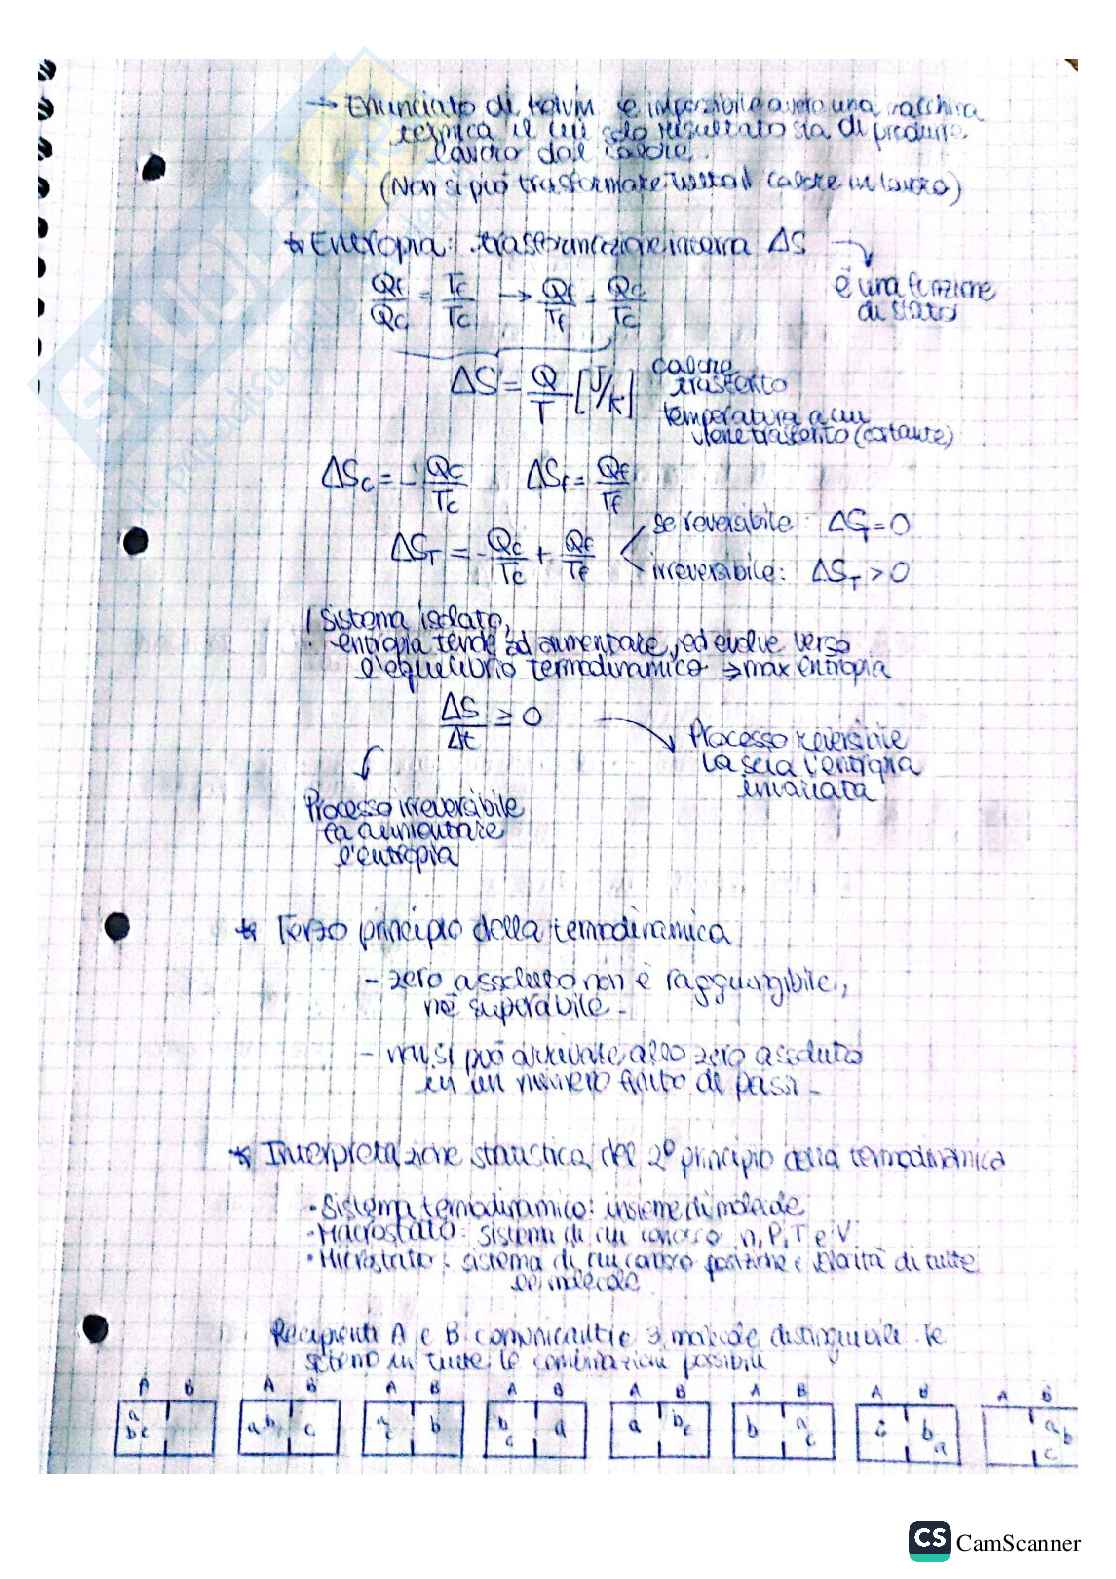 → Enunciato di Kelvin è impossibile avere una macchina
termica il cui solo risultato sia di produrre
lavoro dal calore.
(Non si può trasformare tutto il calore in lavoro)
* Entropia: trasformazione interna ΔS → è una funzione
di stato
Qf/Qc = Tf/Tc → Qf/Tf = Qc/Tc
ΔS = Q/T [J/K] calore
trasferito
temperatura a cui
viene trasferito (costante)
ΔSc = - Qc/Tc ΔSf = Qf/Tf
se reversibile: ΔST = 0
ΔST = - Qc/Tc + Qf/Tf
irreversibile: ΔST > 0
! Sistema isolato,
entropia tende ad aumentare, ed evolve verso
l'equilibrio termodinamico → max entropia
ΔS/Δt ≥ 0
Processo reversibile
lascia l'entropia
invariata
Processo irreversibile
fa aumentare
l'entropia
* Terzo principio della termodinamica
- zero assoluto non è raggiungibile,
né superabile -
- non si può arrivare allo zero assoluto
in un numero finito di passi -
* Interpretazione statistica del 2º principio della termodinamica
• Sistema termodinamico: insieme di molecole
• Macrostato: sistema di cui conosco n, P, T e V
• Microstato: sistema di cui conosco posizione e velocità di tutte
le molecole
Recipienti A e B comunicanti e 3 molecole distinguibili. Le
sistemo in tutte le combinazioni possibili
A B A B A B A B A B A B A B A B
a b c
a b c
a c b
b c a
a b c
b a c
c b a
a b c
CS CamScanner